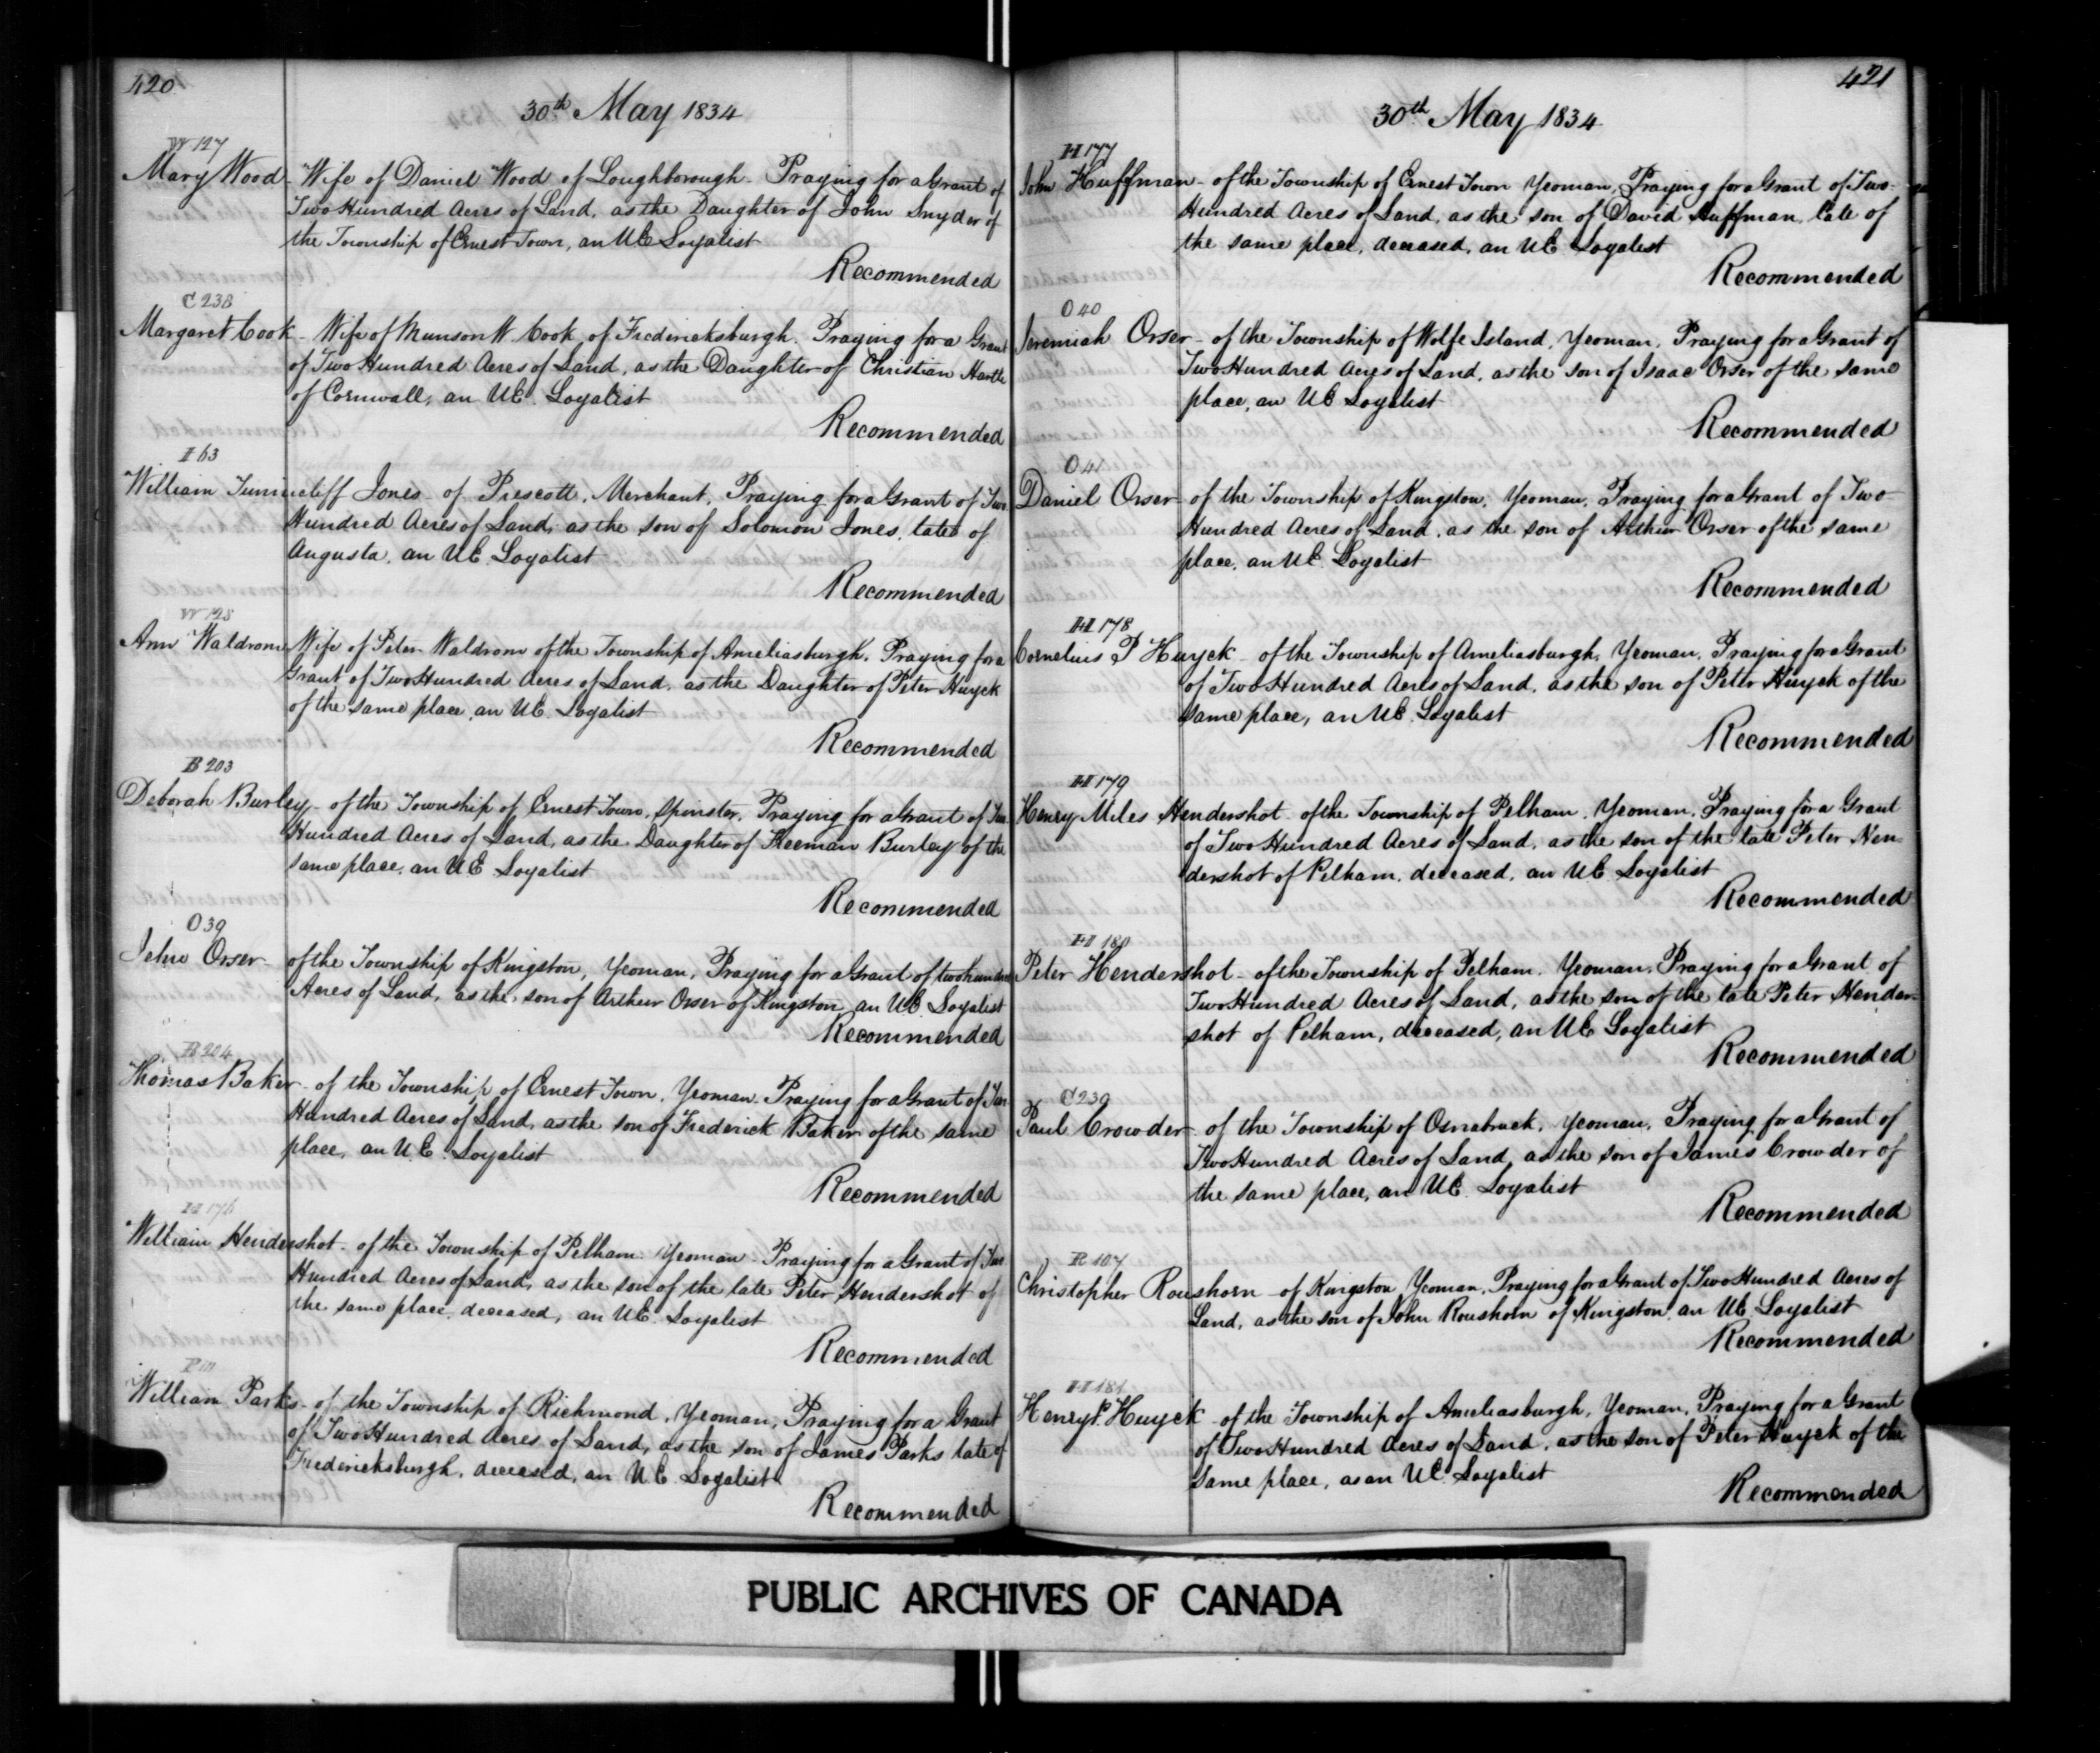 420
30th May 1834
W 127
Mary Wood - Wife of Daniel Wood of Loughborough - Praying for a Grant of
Two Hundred Acres of Land, as the Daughter of John Snyder of
the Township of Ernest Town, an UE Loyalist
Recommended
C 238
Margaret Cook - Wife of Munson W. Cook, of Fredericksburgh. Praying for a Grant
of Two Hundred Acres of Land, as the Daughter of Christian
of Cornwall, an UE. Loyalist
Recommended
I 63
William Tunnicliff Jones - of Prescott, Merchant, Praying for a Grant of Two
Hundred Acres of Land, as the son of Solomon Jones, late of
Augusta, an UE. Loyalist
Recommended
W 128
Ann Waldrom Wife of Peter Waldrom of the Township of Ameliasburgh, Praying for a
Grant of Two Hundred Acres of Land, as the Daughter of Peter Huyck
of the same place, an UE. Loyalist
Recommended
B 203
Deborah Burley - of the Township of Ernest Town, Spinster, Praying for a Grant of Two
Hundred Acres of Land, as the Daughter of Freeman Burley of the
same place, an UE Loyalist
Recommended
O 39
John Orser - of the Township of Kingston, Yeoman, Praying for a Grant of two hundred
Acres of Land, as the son of Arthur Orser of Kingston, an UE. Loyalist
Recommended
B 204
Thomas Baker - of the Township of Ernest Town, Yeoman. Praying for a Grant of Two
Hundred Acres of Land, as the son of Frederick Baker of the same
place, an U.E. Loyalist
Recommended
H 176
William Hendershot - of the Township of Pelham Yeoman - Praying for a Grant of Two
Hundred Acres of Land, as the son of the late Peter Hendershot of
the same place, deceased, an UE. Loyalist
Recommended
P 111
William Parks - of the Township of Richmond, Yeoman, Praying for a Grant
of Two Hundred Acres of Land, as the son of James Parks late of
Fredericksburgh, deceased, an U.E. Loyalist
Recommended
421
30th May 1834
H 177
John Huffman - of the Township of Ernest Town Yeoman, Praying for a Grant of Two
Hundred Acres of Land, as the son of David Huffman, late of
the same place, deceased, an UE Loyalist
Recommended
O 40
Jeremiah Orser - of the Township of Wolfe Island, Yeoman, Praying for a Grant of
Two Hundred Acres of Land, as the son of Isaac Orser of the same
place, an UE Loyalist
Recommended
O 41
Daniel Orser - of the Township of Kingston, Yeoman, Praying for a Grant of Two
Hundred Acres of Land, as the son of Arthur Orser of the same
place, an UE. Loyalist
Recommended
H 178
Cornelius P Huyck - of the Township of Ameliasburgh, Yeoman, Praying for a Grant
of Two Hundred Acres of Land, as the son of Peter Huyck of the
same place, an UE. Loyalist
Recommended
H 179
Henry Miles Hendershot - of the Township of Pelham, Yeoman, Praying for a Grant
of Two Hundred Acres of Land, as the son of the late Peter Hen-
dershot of Pelham, deceased, an UE Loyalist
Recommended
H 180
Peter Hendershot - of the Township of Pelham, Yeoman, Praying for a Grant of
Two Hundred Acres of Land, as the son of the late Peter Hender-
shot of Pelham, deceased, an UE Loyalist
Recommended
C 239
Paul Crowder - of the Township of Osnabruck, Yeoman, Praying for a Grant of
Two Hundred Acres of Land, as the son of James Crowder of
the same place, an UE. Loyalist
Recommended
R 107
Christopher Roushorn - of Kingston Yeoman, Praying for a Grant of Two Hundred Acres of
Land, as the son of John Roushorn of Kingston, an UE Loyalist
Recommended
H 181
Henry P. Huyck - of the Township of Ameliasburgh, Yeoman, Praying for a Grant
of Two Hundred Acres of Land, as the son of Peter Huyck of the
same place, as an UE. Loyalist
Recommended
PUBLIC ARCHIVES OF CANADA